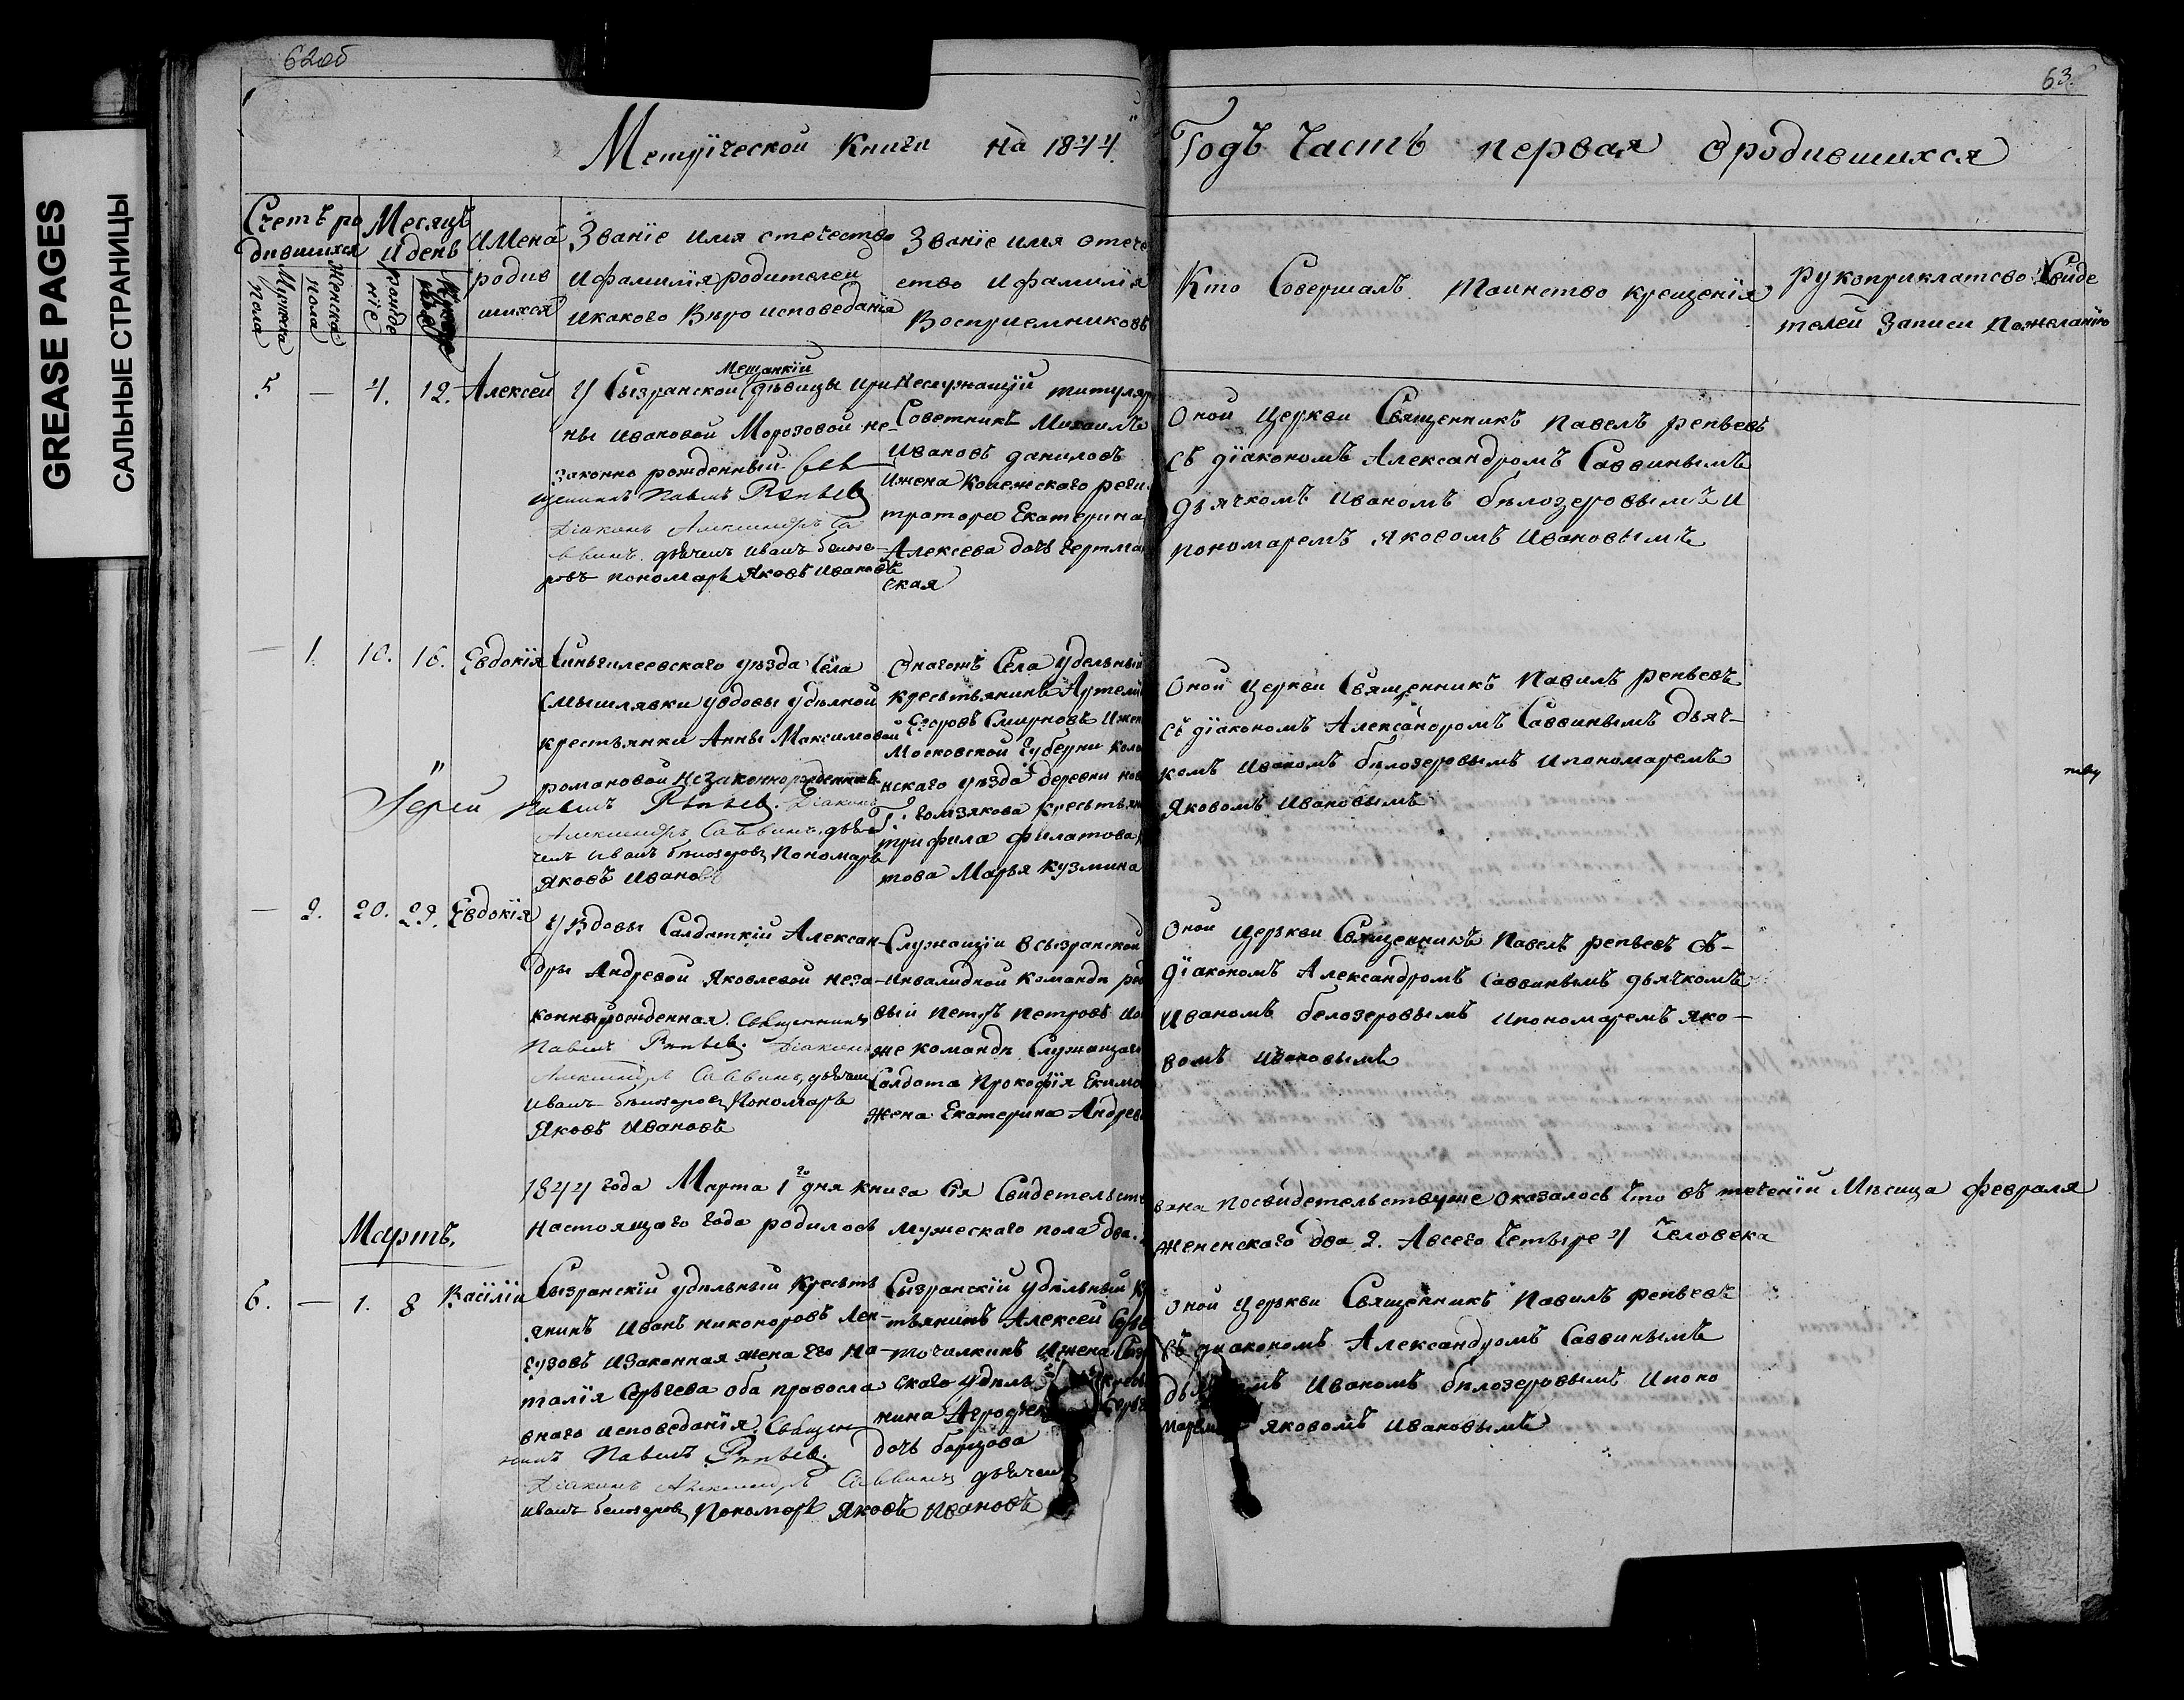 GREASE PAGES
САЛЬНЫЕ СТРАНИЦЫ
62об
63
Метрической Книги на 1844. Годъ Часть первая Ородившихся
Счетъ ро
дившихся
Мужска
пола
Женска
пола
Месяцъ
и день
рожде
нiе
Имена
родив
шихся
Званiе имя отечество
И фамилiя родителей
И какого Веро исповеданiя
Званiе имя отече
ство И фамилiя
Восприемниковъ
Кто Совершалъ Таинство Крещенiя
Рукоприклатсво Свиде
телей Записи Пожеланiю
5. — 4. 12. Алексей
У Сызранской Мещанкiи девицы Ири
ны Ивановой Морозовой не-
законно рожденный Свя
щенникъ Павелъ Репьев
Дiаконъ Александръ Са
ввинъ дьячекъ Иванъ белозе
ровъ пономарь Яковъ Ивановъ
Неслужащiй титуляр
Советникъ Михаилъ
Ивановъ даниловъ
Ижена Колежского реги
тратора Екатерина
Алексева дочь Чертма
ская
Оной Церкви Священникъ Павелъ репьевъ
Съ дiакономъ Александромъ Саввинымъ
дьячкомъ Иваномъ белозеровымъ И
пономаремъ Яковомъ Ивановымъ
— 1. 10. 16. Евдокiя
Синьгилеевского уезда Села
Смышлявки увдовы уделной
крестьянки Анны Максимовой
романовой Незаконнорожденная
Iерей Павелъ Репьев. Дiаконъ
Александръ Саввинъ дья
чекъ Иванъ белозеровъ Пономарь
Яковъ Ивановъ
Оногожъ Села удельный
крестьянинъ Артемi
Егоровъ Смирновъ Ижен
Московской Губерни Коло
нского уезда деревни нов
Гомзякова Крестьян
трифила филатова
това Марья Кузмина
Оной Церкви Священникъ Павилъ репьевъ
Съ дiакономъ Александромъ Саввинымъ дьяч-
комъ Иваномъ белозеровымъ Ипономаремъ
Яковомъ Ивановымъ
тву
— 2. 20. 29. Евдокiя
У Вдовы Салдаткiи Алексан-
дры Андревой Яковлевой неза-
коннырожденная. Священникъ
Павелъ Репьев. Дiаконъ
Александръ Саввинъ, дьячекъ
Иванъ белозеровъ Пономарь
Яковъ Ивановъ
Служащiи Всызранской
Инвалидной команде ря
вый Петръ Петровъ Ио
же команды Служащаго
Солдата Прокофiя Екимо
жена Екатерина Андрев
Оной Церкви Священникъ Павелъ репьевъ съ-
дiакономъ Александромъ Саввинымъ дьячкомъ
Иваномъ белозеровымъ Ипономаремъ Яко-
вомъ Ивановымъ
1844 года Марта 1го дня книга Сiя Свидетельст
вана Посвидетельствуше Оказалось Что въ теченiи Месица Февраля
Настоящаго года родилось Мужескаго пола два.
женскаго два 2. Авсего Четыре 4 Человека
Мартъ,
6. — 1. 8 Васiлiи
Сызранскiй удельный Кресть
янинъ Иванъ никоноровъ Лен-
гузовъ Изаконная жена Его На-
талiя Сергеева оба правосла
внаго исповеданiя. Священ
никъ Павелъ Репьев.
Дiаконъ Александръ Саввинъ дьячекъ
Иванъ белозеровъ Пономарь Яковъ Ивановъ
Сызранскiй удельный К
тьянинъ Алексей Серге
точилкинъ Ижена Сыз
скаго уделъ
нина
дочь борцова
Оной Церкви Священникъ Павилъ репьевъ
Съ дiакономъ Александромъ Саввинымъ
Иваномъ белозеровымъ Ипоно
маремъ Яковомъ Ивановымъ